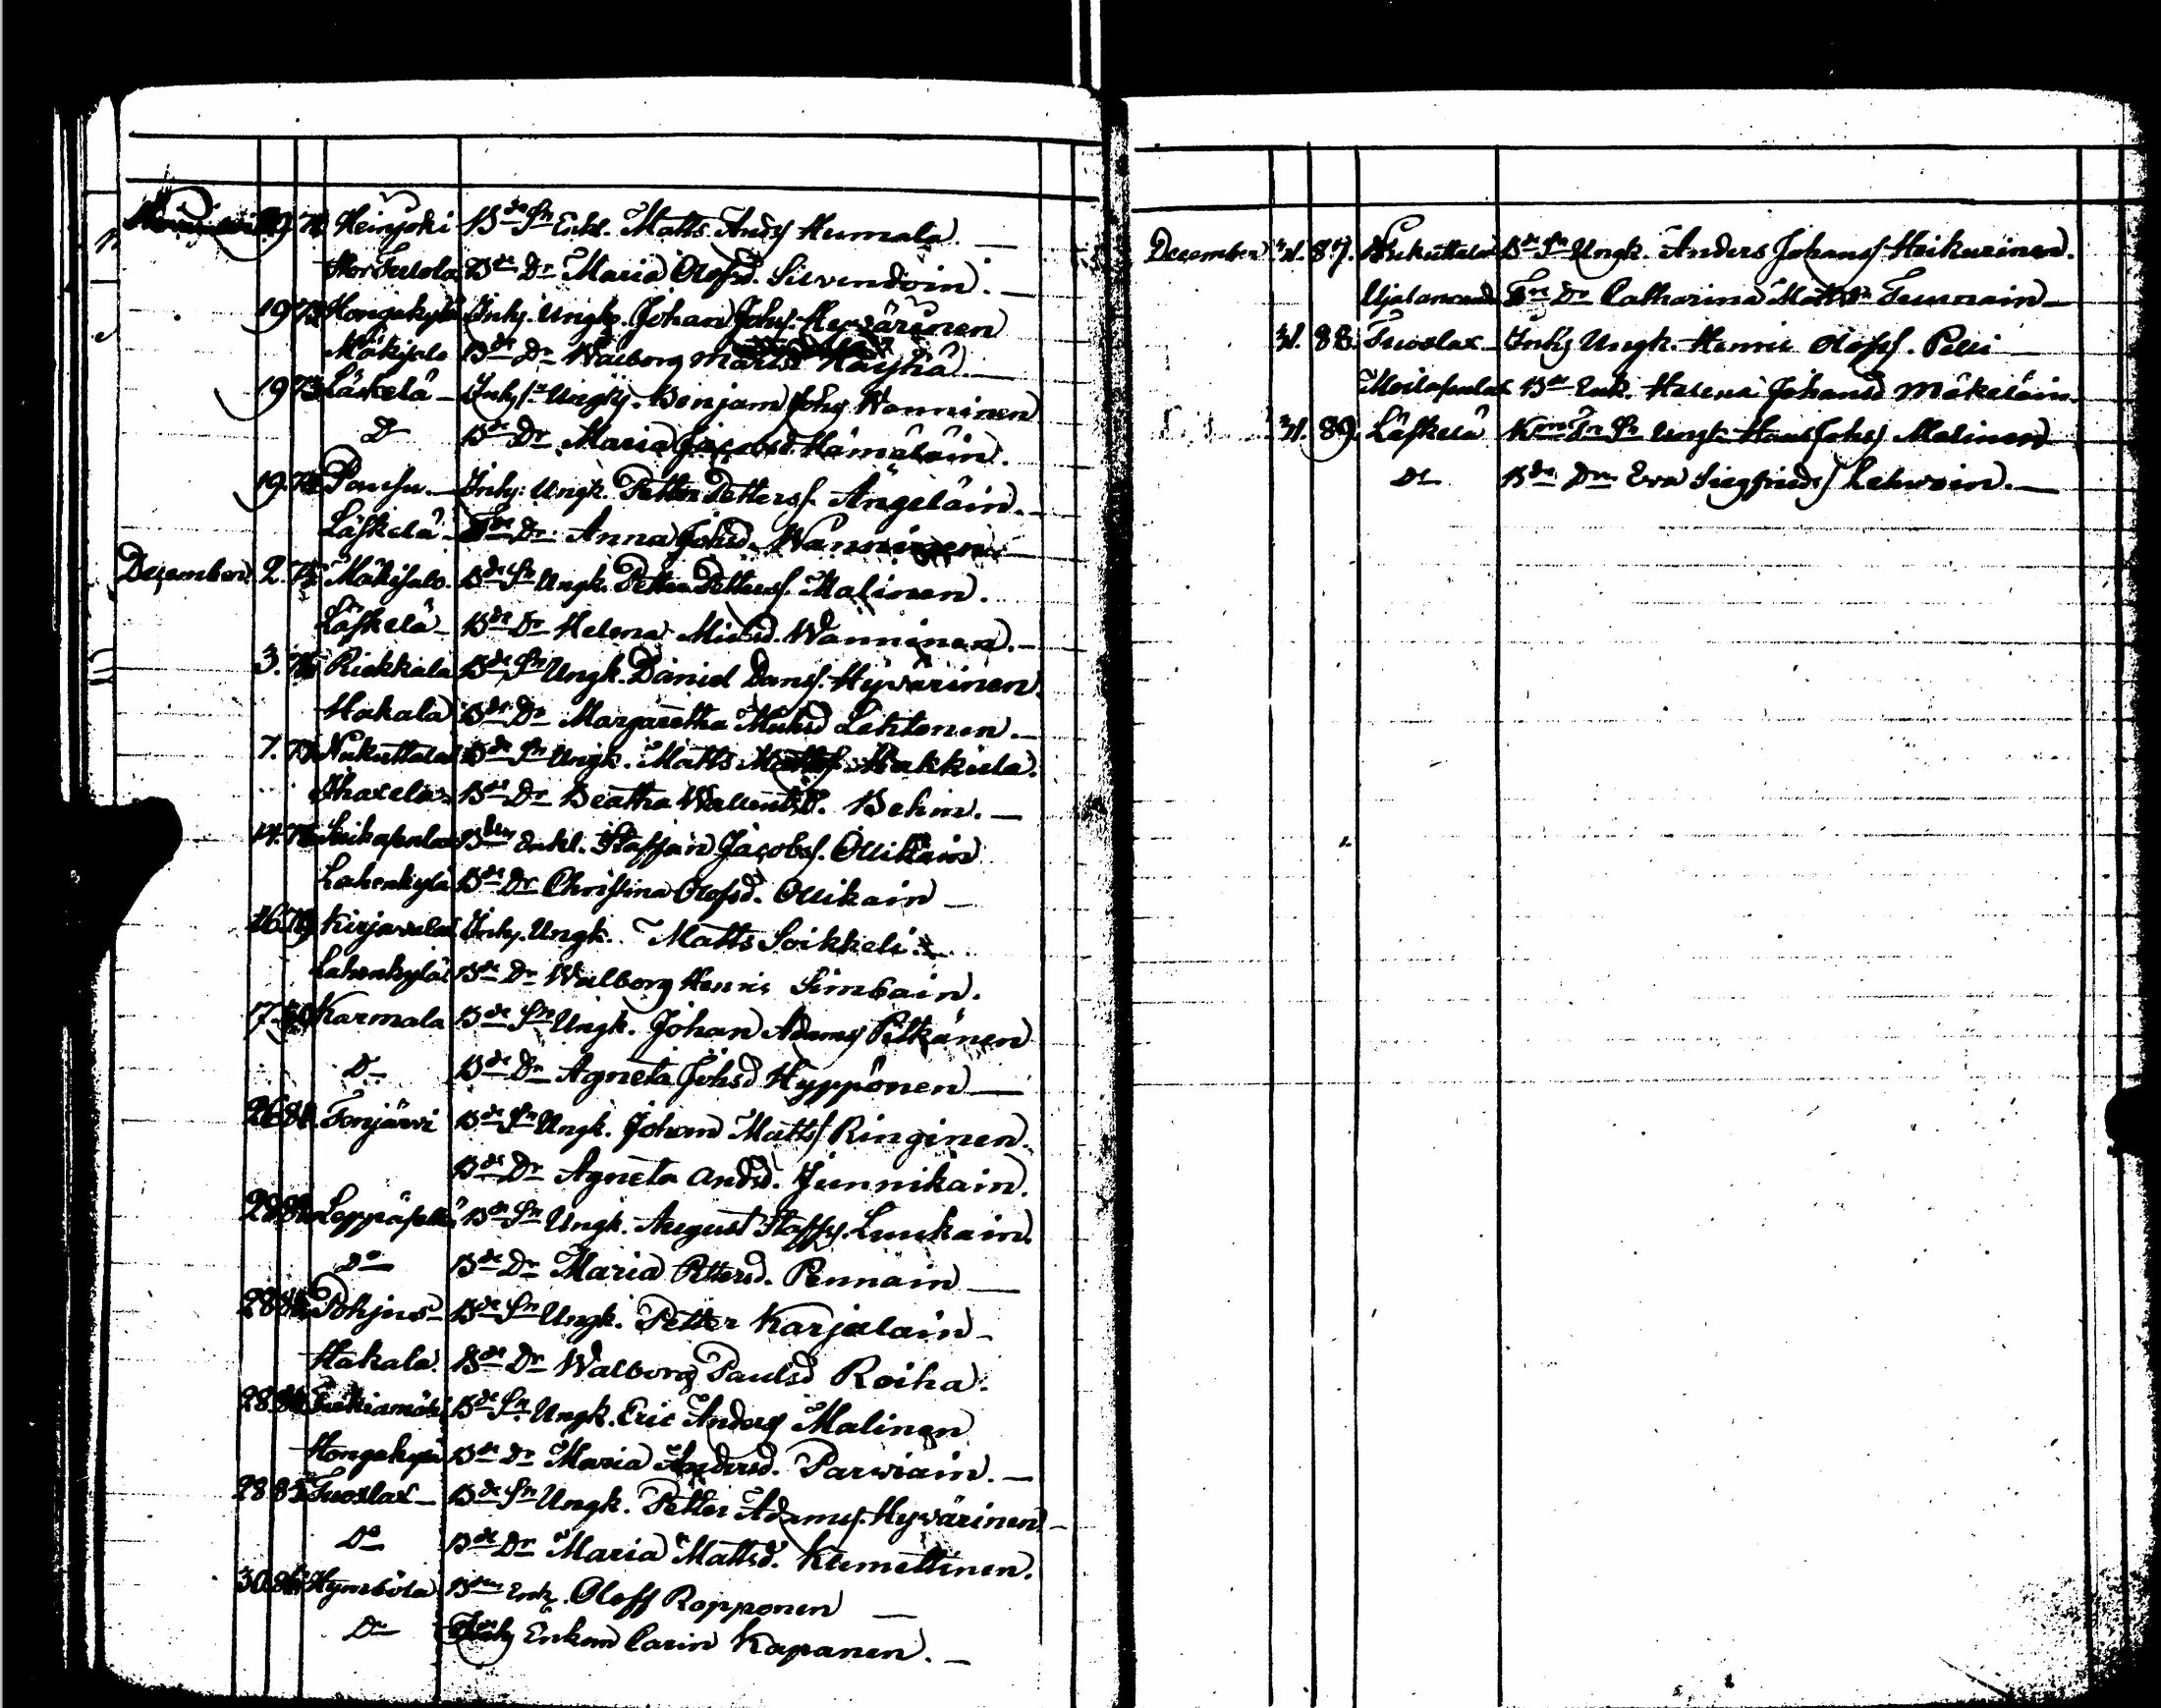 19 71 Heinjoki Bde Sn Enkl. Matts Andsf Humala. —
Bde Dr Maria Olofsd. Sirvendoin. —
19 72 Hongakylä Inhs. Ungk. Johan Johsf. Hyvärinen
Mäkisalo Bde Dr Walborg Mattsd Häyhä. —
19 73 Läskelä — Inhs. Ungk. Benjam Johsf Wanninen
Do Bde Dr Maria Jacobsd. Hämäläin.
19. 74 Inhs: Ungk. Petter Pettersf. Ängeläin. —
Läskelä — Dr Anna Johsd. Wanninen —
December 2. 75 Mäkisalo. Bde Sn Ungk. Petter Pettersf. Malinen.
Läskelä — Bde Dr Helena Micksd. Wanninen. —
3. 76 Riekkala Bde Sn Ungk. Daniel Dansf. Hyvärinen.
Hakala Bde Dr Margaretha Micksd Lehtonen. —
7. 77 Nukuttalax Bde Sn Ungk. Matts Mattsf. Hakkula.
Bde Dr Beatha Valentsd. Behm. —
14. 78 Bden Enkl. Staffan Jacobsf. Ollikain
Lahenkylä Bde Dr Christina Olofsd. Ollikain —
16 79 Kirjavalax Inhs. Ungk. Matts Soikkeli. —
Lahenkylä Bde Dr Walborg Henrics Simbain.
17. 80 Karmala Bde Sn Ungk. Johan Adamsf Pitkänen
Do Bde Dr Agneta Johsd Hyppönen —
26 81. Tonjärvi Bde Sn Ungk. Johan Mattsf Ringinen.
Bde Dr Agneta Andsd. Junnikain.
28 82 Leppäselkä Bde Sn Ungk. August Staffsf. Luukain.
Do Bde Dr Maria Pettersd. Pennain —
28 83 Pohjus — Bde Sn Ungk. Petter Karjalain —
Hakala. Bde Dr Walborg Paulsd Roiha.
28 84 Tuokiamäki Bde Sn Ungk. Eric Andersf Malinen
Hongakylä Bde Dr Maria Andersd. Parviain. —
28 85 Tuoslax — Bde Sn Ungk. Petter Adamsf. Hyvärinen —
Do Bde Dr Maria Mattsd. Klemettinen.
30. 86 Hymböla Bden Enk. Oloff Ropponen —
Do Enkan Carin Kapanen. —
December 31. 87. Nukuttalax Bde Sn Ungk. Anders Johansf Heikurinen.
Dr Catharina Mattsdr —
31. 88. Tuoslax — Inhs Ungk. Henric Olofsf. Pelli —
Bde Enk. Helena Johansd Mäkeläin.
31. 89. Läskelä Sn Ungk. Hans Johsf Malinen
Do Bde Dr Eva Siegfrieds Lehvoin. —